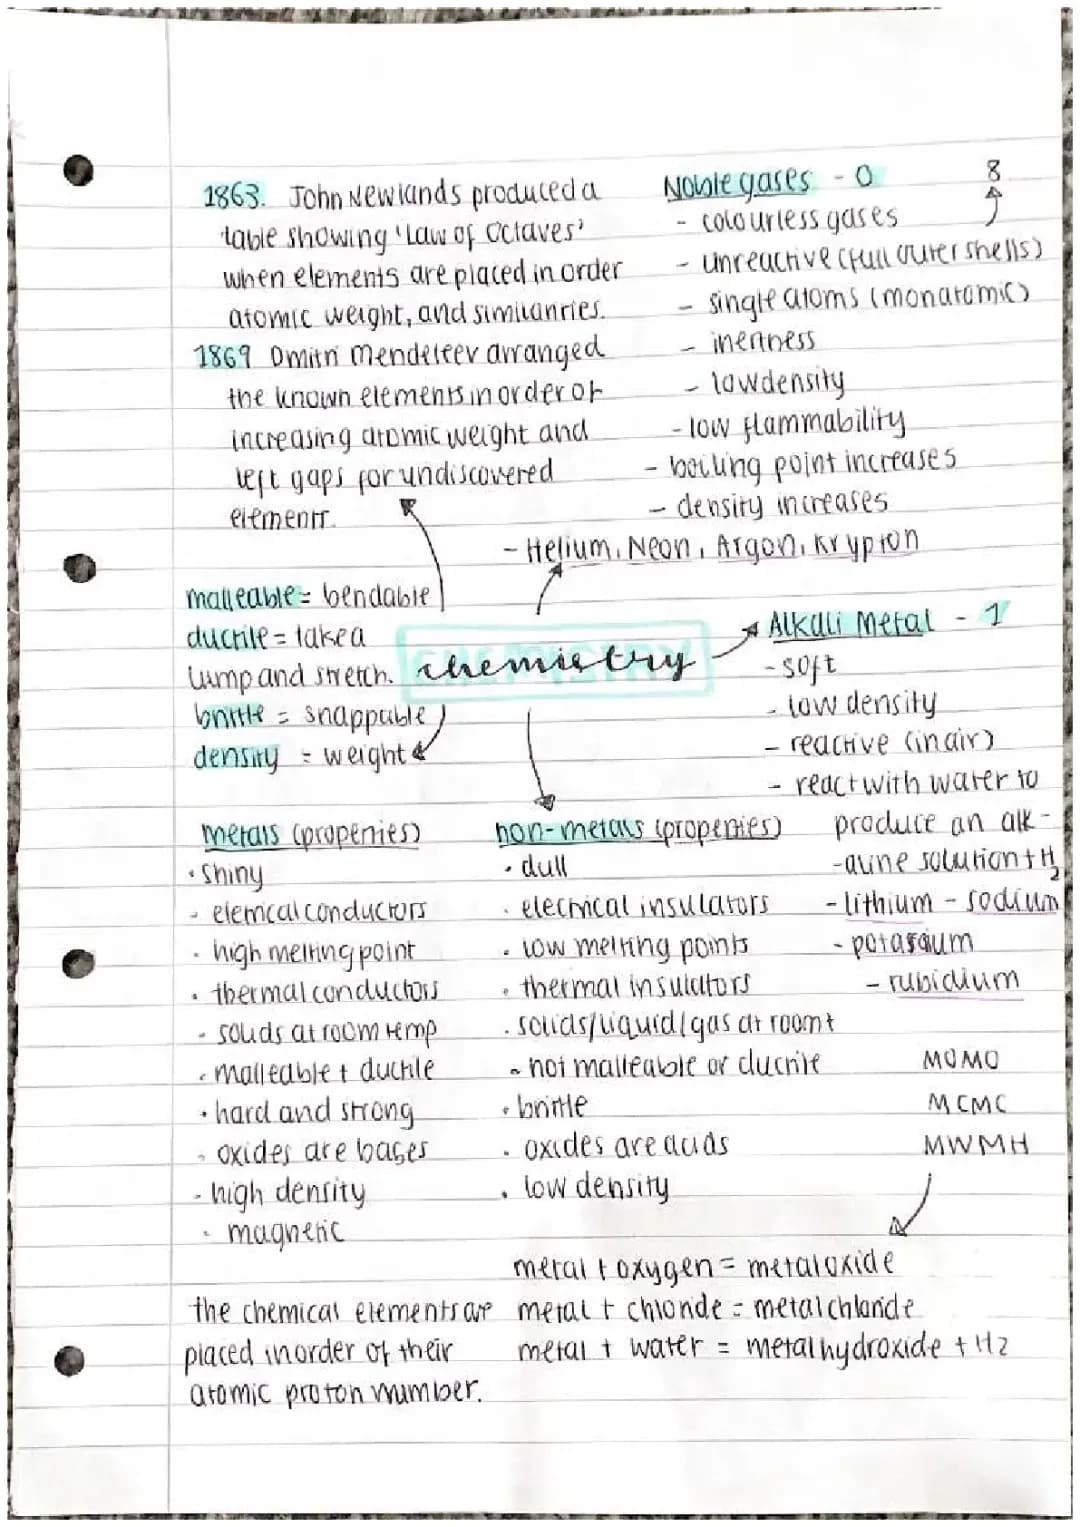 1863. John Newlands produced a
table showing 'Law of Octaves'
when elements are placed in order
atomic weight, and similarities.
1869 Dmitri Mendeleev arranged
the known elements in order of
increasing atomic weight and
left gaps for undiscovered
elements.
Noble gases - 0
8
- colourless gases
- unreactive (full outer shells)
- single atoms (monatomic)
- inertness
- low density
- low flammability
- boiling point increases
- density increases
- Helium, Neon, Argon, Krypton
malleable = bendable
ductile = take a
lump and stretch.
brittle = snappable
density = weight
chemistry
Alkali Metal - 1
- soft
- low density
- reactive (in air)
- react with water to
produce an alk-
-aline solution + H2
- lithium - sodium
- potassium
- rubidium
metals (properties)
· shiny
· electrical conductors
· high melting point
· thermal conductors
· solids at room temp
· malleable + ductile
· hard and strong
· oxides are bases
· high density
· magnetic
non-metals (properties)
· dull
· electrical insulators
· low melting points
· thermal insulators
· solids/liquid/gas at room t
· not malleable or ductile
· brittle
· oxides are acids
· low density
MOMO
MCMC
MWMH
metal + oxygen = metal oxide
metal + chloride = metal chloride
metal + water = metal hydroxide + H2
the chemical elements are
placed in order of their
atomic proton number.